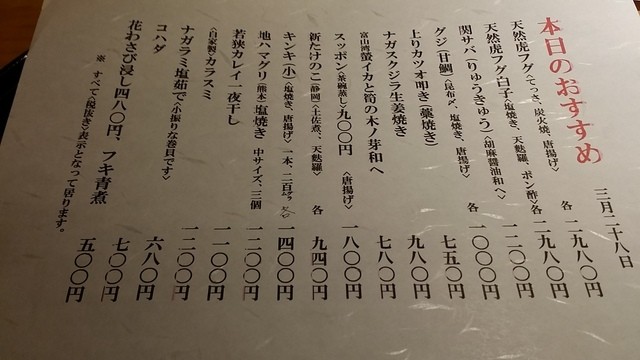 本日のおすすめ
三月二十八日
天然虎フグ〈てっさ、炭火焼、唐揚げ〉各 二九八〇円
天然虎フグ白子〈塩焼き、天麩羅、ポン酢〉各 二九八〇円
関サバ(りゅうきゅう)〈胡麻醤油和へ〉 二二〇〇円
グジ(甘鯛)〈昆布〆、塩焼き、唐揚げ〉各 一〇〇〇円
上りカツオ叩き(藁焼き) 七五〇円
ナガスクジラ生姜焼き 九八〇円
富山湾蛍イカと筍の木ノ芽和へ 七八〇円
スッポン〈茶碗蒸し〉九〇〇円 〈唐揚げ〉 一八〇〇円
新たけのこ(静岡)〈土佐煮、天麩羅〉各 九四〇円
キンキ(小)〈塩焼き、唐揚げ〉一本、二百㌘ 一四〇〇円
地ハマグリ(熊本)塩焼き 中サイズ、三個 一二〇〇円
若狭カレイ一夜干し 一一〇〇円
〈自家製〉カラスミ 一二〇〇円
ナガラミ塩茹で〈小振りな巻貝です〉 六八〇円
コハダ 七〇〇円
花わさび浸し四八〇円、フキ青煮 五〇〇円
※ すべて〈税抜き〉表示となって居ります。